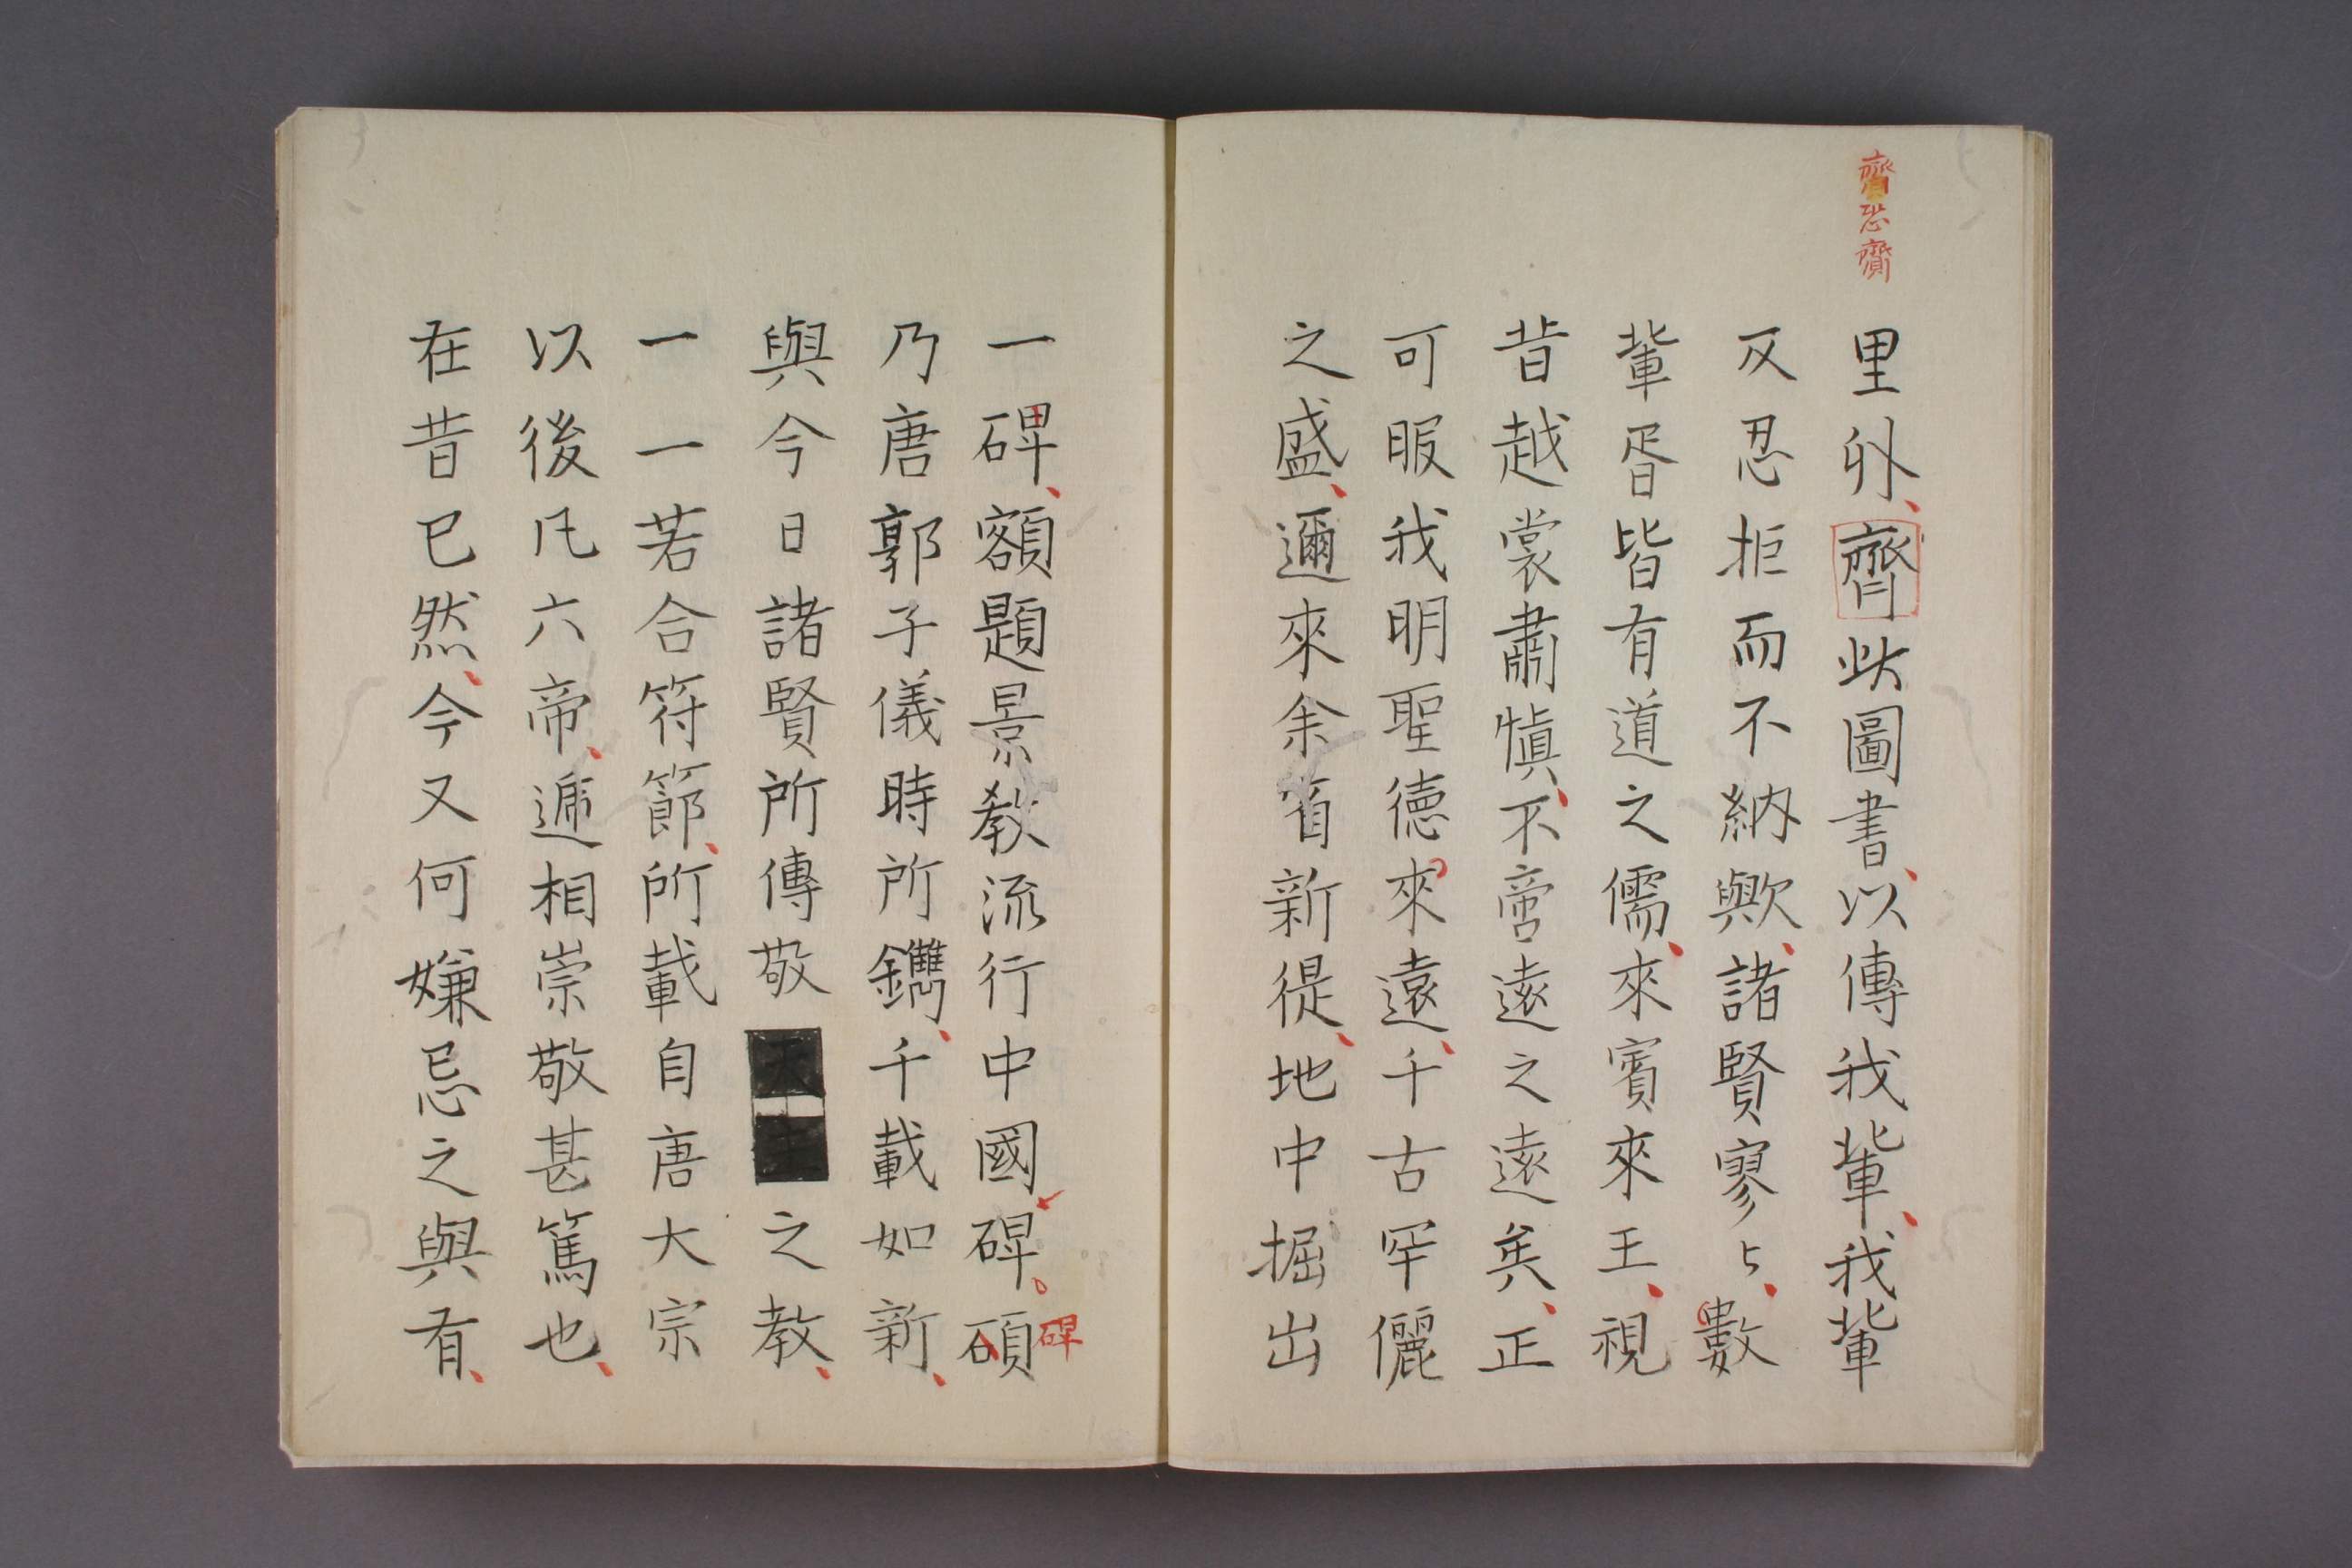 齊恐齎
里外、齊此圖書、以傳我輩、我輩
反忍拒而不納歟、諸賢寥々、數
輩胥皆有道之儒、來賓來王、視
昔越裳肅愼、不啻遠之遠矣、正
可服我明聖德來遠、千古罕儷
之盛、邇來余省新從、地中掘出
一碑、額題景教流行中國碑。碩
碑
乃唐郭子儀時所鐫、千載如新、
與今日諸賢所傳敬天主之教、
一一若合符節、所載自唐大宗
以後凡六帝、遞相崇敬甚篤也、
在昔已然、今又何嫌忌之與有、